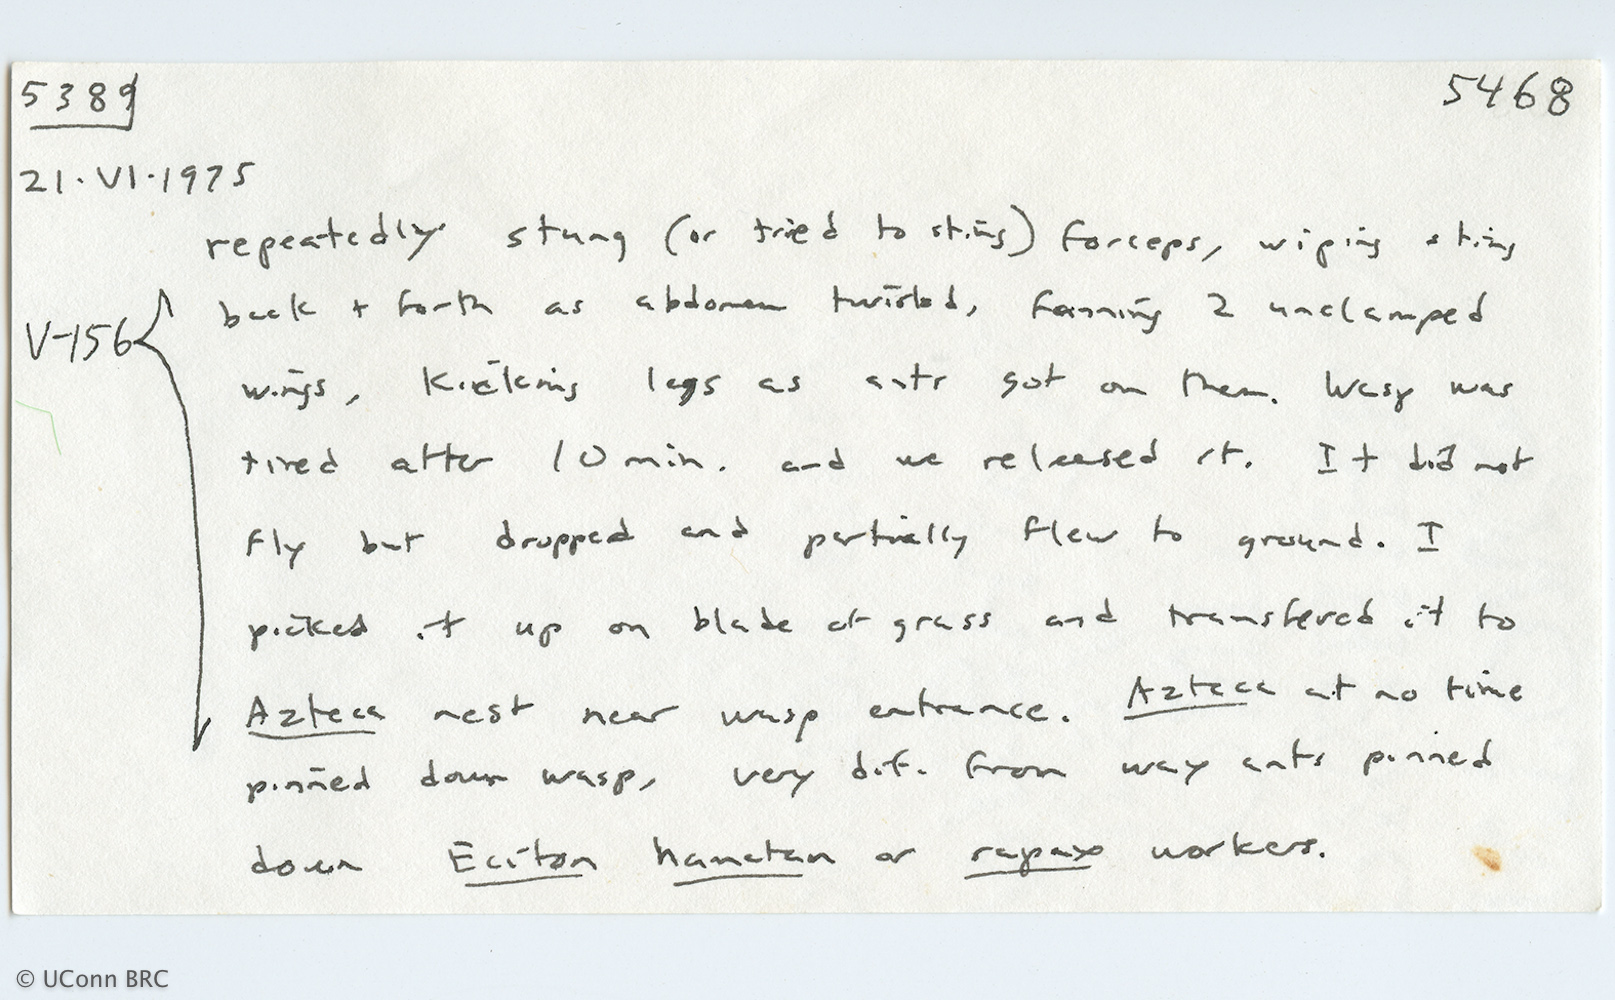 5389
5468
21·VI·1975
repeatedly stung (or tried to sting) forceps, wiping sting
V-156
back + forth as abdomen twisted, fanning 2 unclamped
wings, kicking legs as ants got on them. Wasp was
tired after 10 min. and we released it. It did not
fly but dropped and partially flew to ground. I
picked it up on blade of grass and transfered it to
Azteca nest near wasp entrance. Azteca at no time
pinned down wasp, very dif. from way ants pinned
down Eciton hamatan or rapax workers.
© UConn BRC